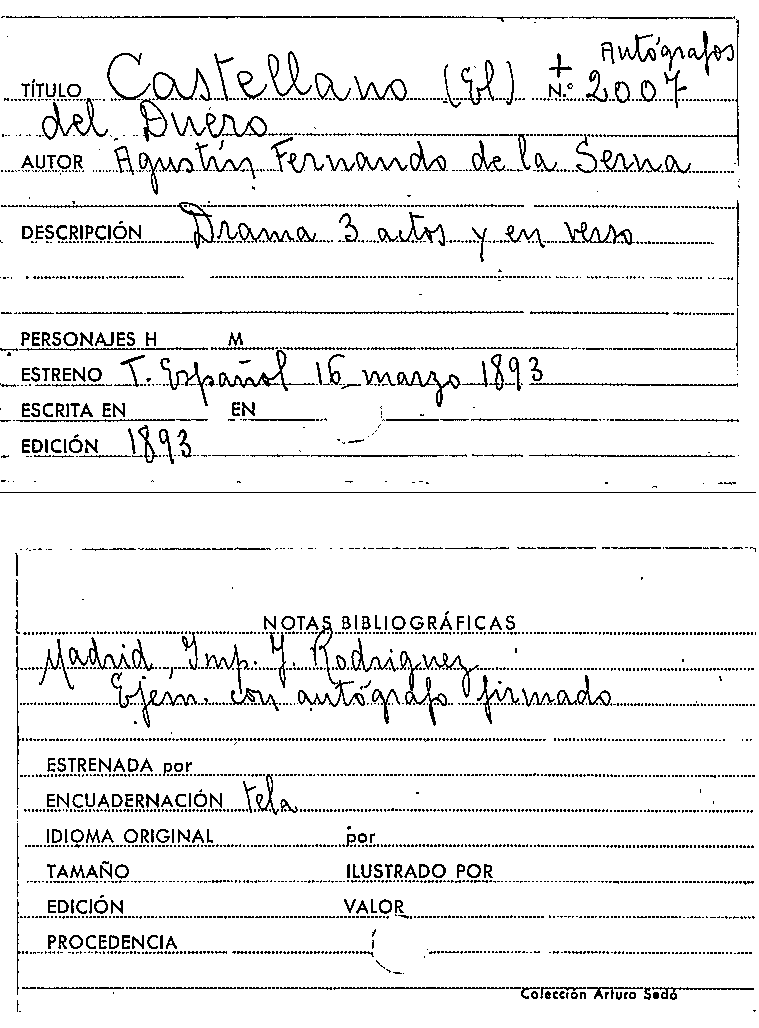 Autógrafos
TÍTULO Castellano (El) + N.º 2007
del Duero
AUTOR Agustín Fernando de la Serna
DESCRIPCIÓN Drama 3 actos y en verso
PERSONAJES H M
ESTRENO T. Español 16 marzo 1893
ESCRITA EN EN
EDICIÓN 1893
NOTAS BIBLIOGRÁFICAS
Madrid, Imp. J. Rodriguez
Ejem. con autógrafo firmado
ESTRENADA por
ENCUADERNACIÓN tela
IDIOMA ORIGINAL por
TAMAÑO ILUSTRADO POR
EDICIÓN VALOR
PROCEDENCIA
Colección Arturo Sedó